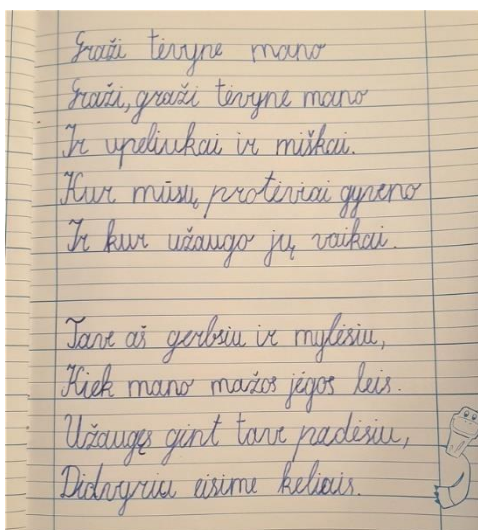 Graži tėvyne mano
Graži, graži tėvyne mano
Ir upeliukai ir miškai.
Kur mūsų protėviai gyveno
Ir kur užaugo jų vaikai.
Tave aš gerbsiu ir mylėsiu,
Kiek mano mažos jėgos leis.
Užaugęs gint tave padėsiu,
Didvyriu eisime keliais.